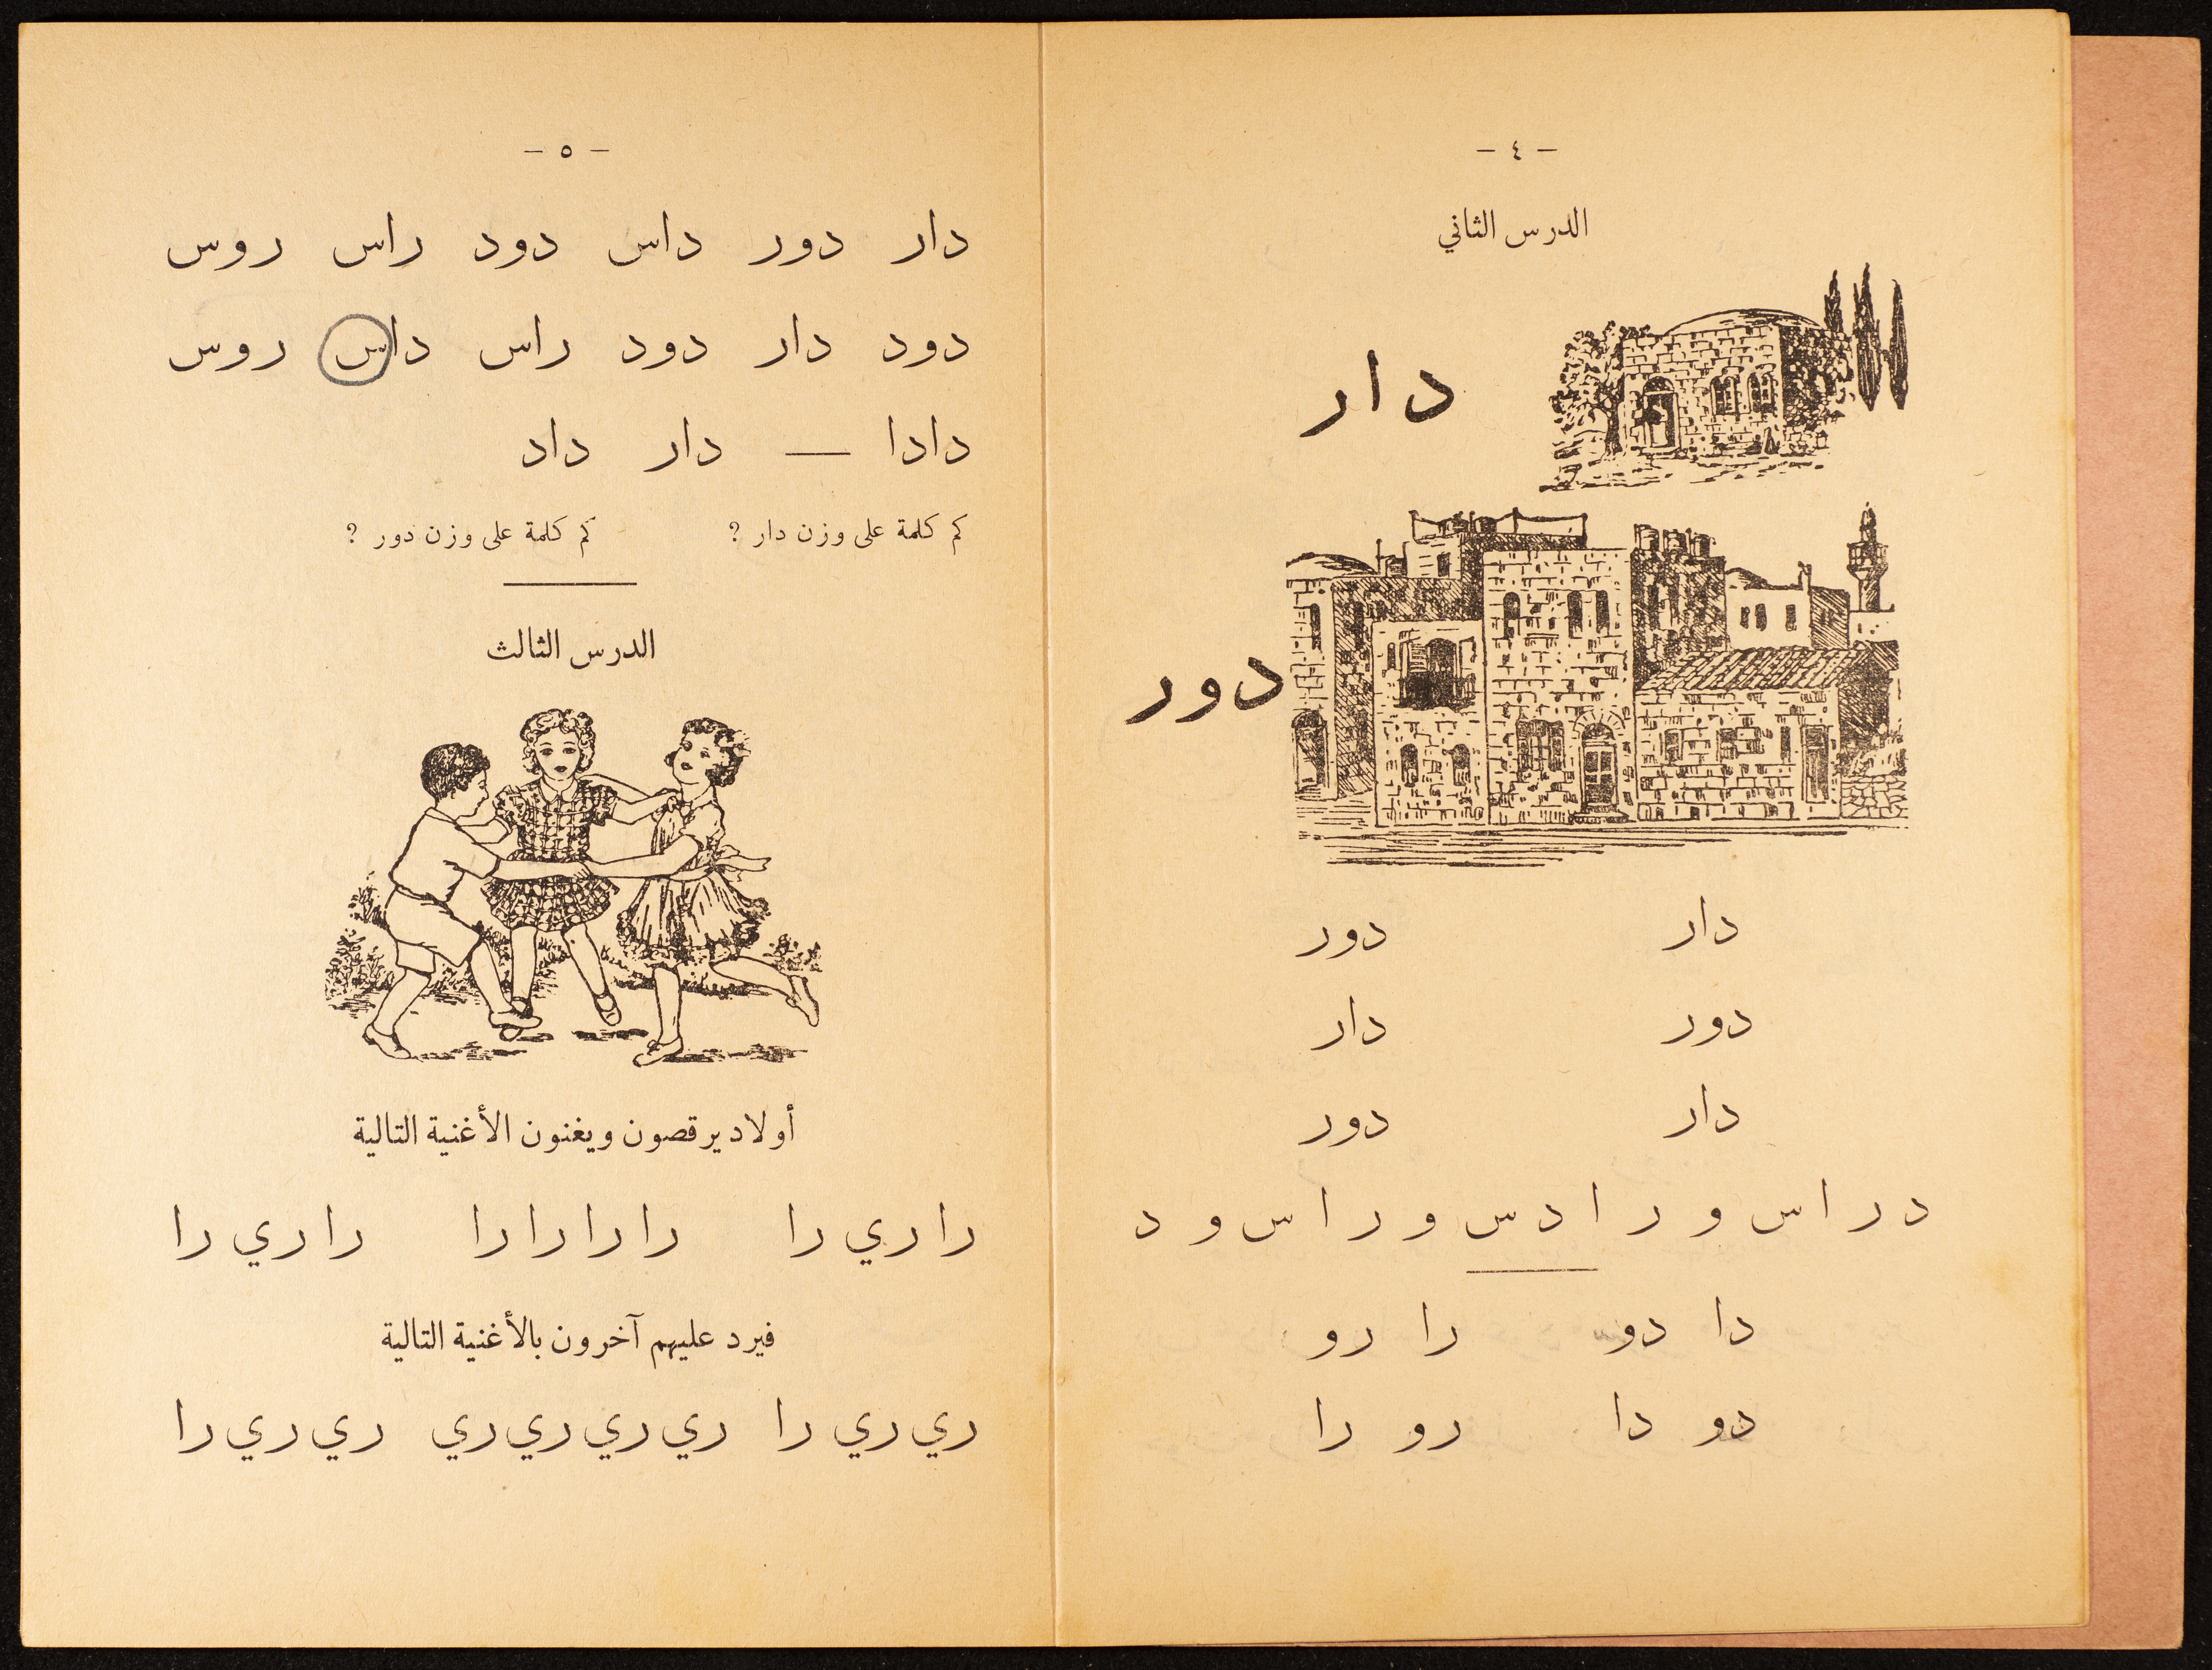 - ٤ -
الدرس الثاني
دار
دور
دار دور
دور دار
دار دور
د ر ا س و ر ا د س و ر ا س و د
دا دو را رو
دو دا رو را
- ٥ -
دار دور داس دود راس روس
دود دار دود راس داس روس
دادا — دار داد
كم كلمة على وزن دار ؟ كم كلمة على وزن دور ؟
الدرس الثالث
أولاد يرقصون ويغنون الأغنية التالية
را ري را را را را را را ري را
فيرد عليهم آخرون بالأغنية التالية
ري ري را ري ري ري ري ري ري ري را